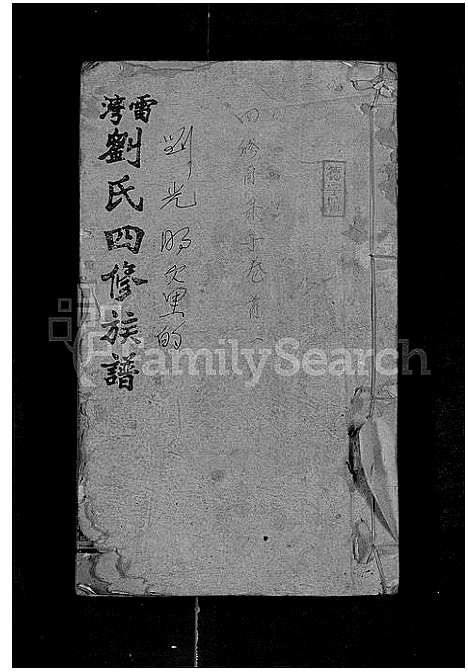 雷灣劉氏四修族譜
劉光明父里的
四修
卷首一
FamilySearch